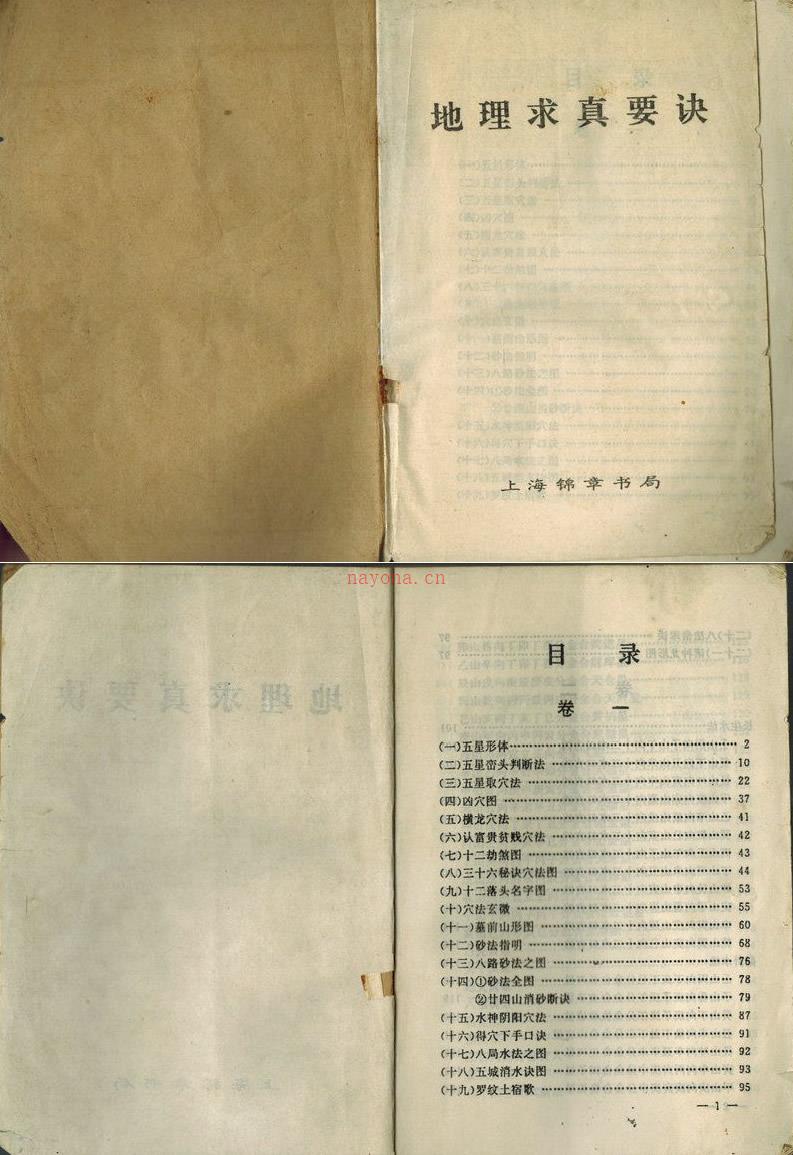 地理求真要诀
上海锦章书局
nayona.cn
目 录
卷 一
(一)五星形体 2
(二)五星峦头判断法 10
(三)五星取穴法 22
(四)凶穴图 37
(五)横龙穴法 41
(六)认富贵贫贱穴法 42
(七)十二劫煞图 43
(八)三十六秘诀穴法图 44
(九)十二落头名字图 53
(十)穴法玄微 55
(十一)墓前山形图 60
(十二)砂法指明 68
(十三)八路砂法之图 76
(十四)①砂法全图 78
②廿四山消砂断诀 79
(十五)水神阴阳穴法 87
(十六)得穴下手口诀 91
(十七)八局水法之图 92
(十八)五城消水诀图 93
(十九)罗纹土宿歌 95
— 1 —